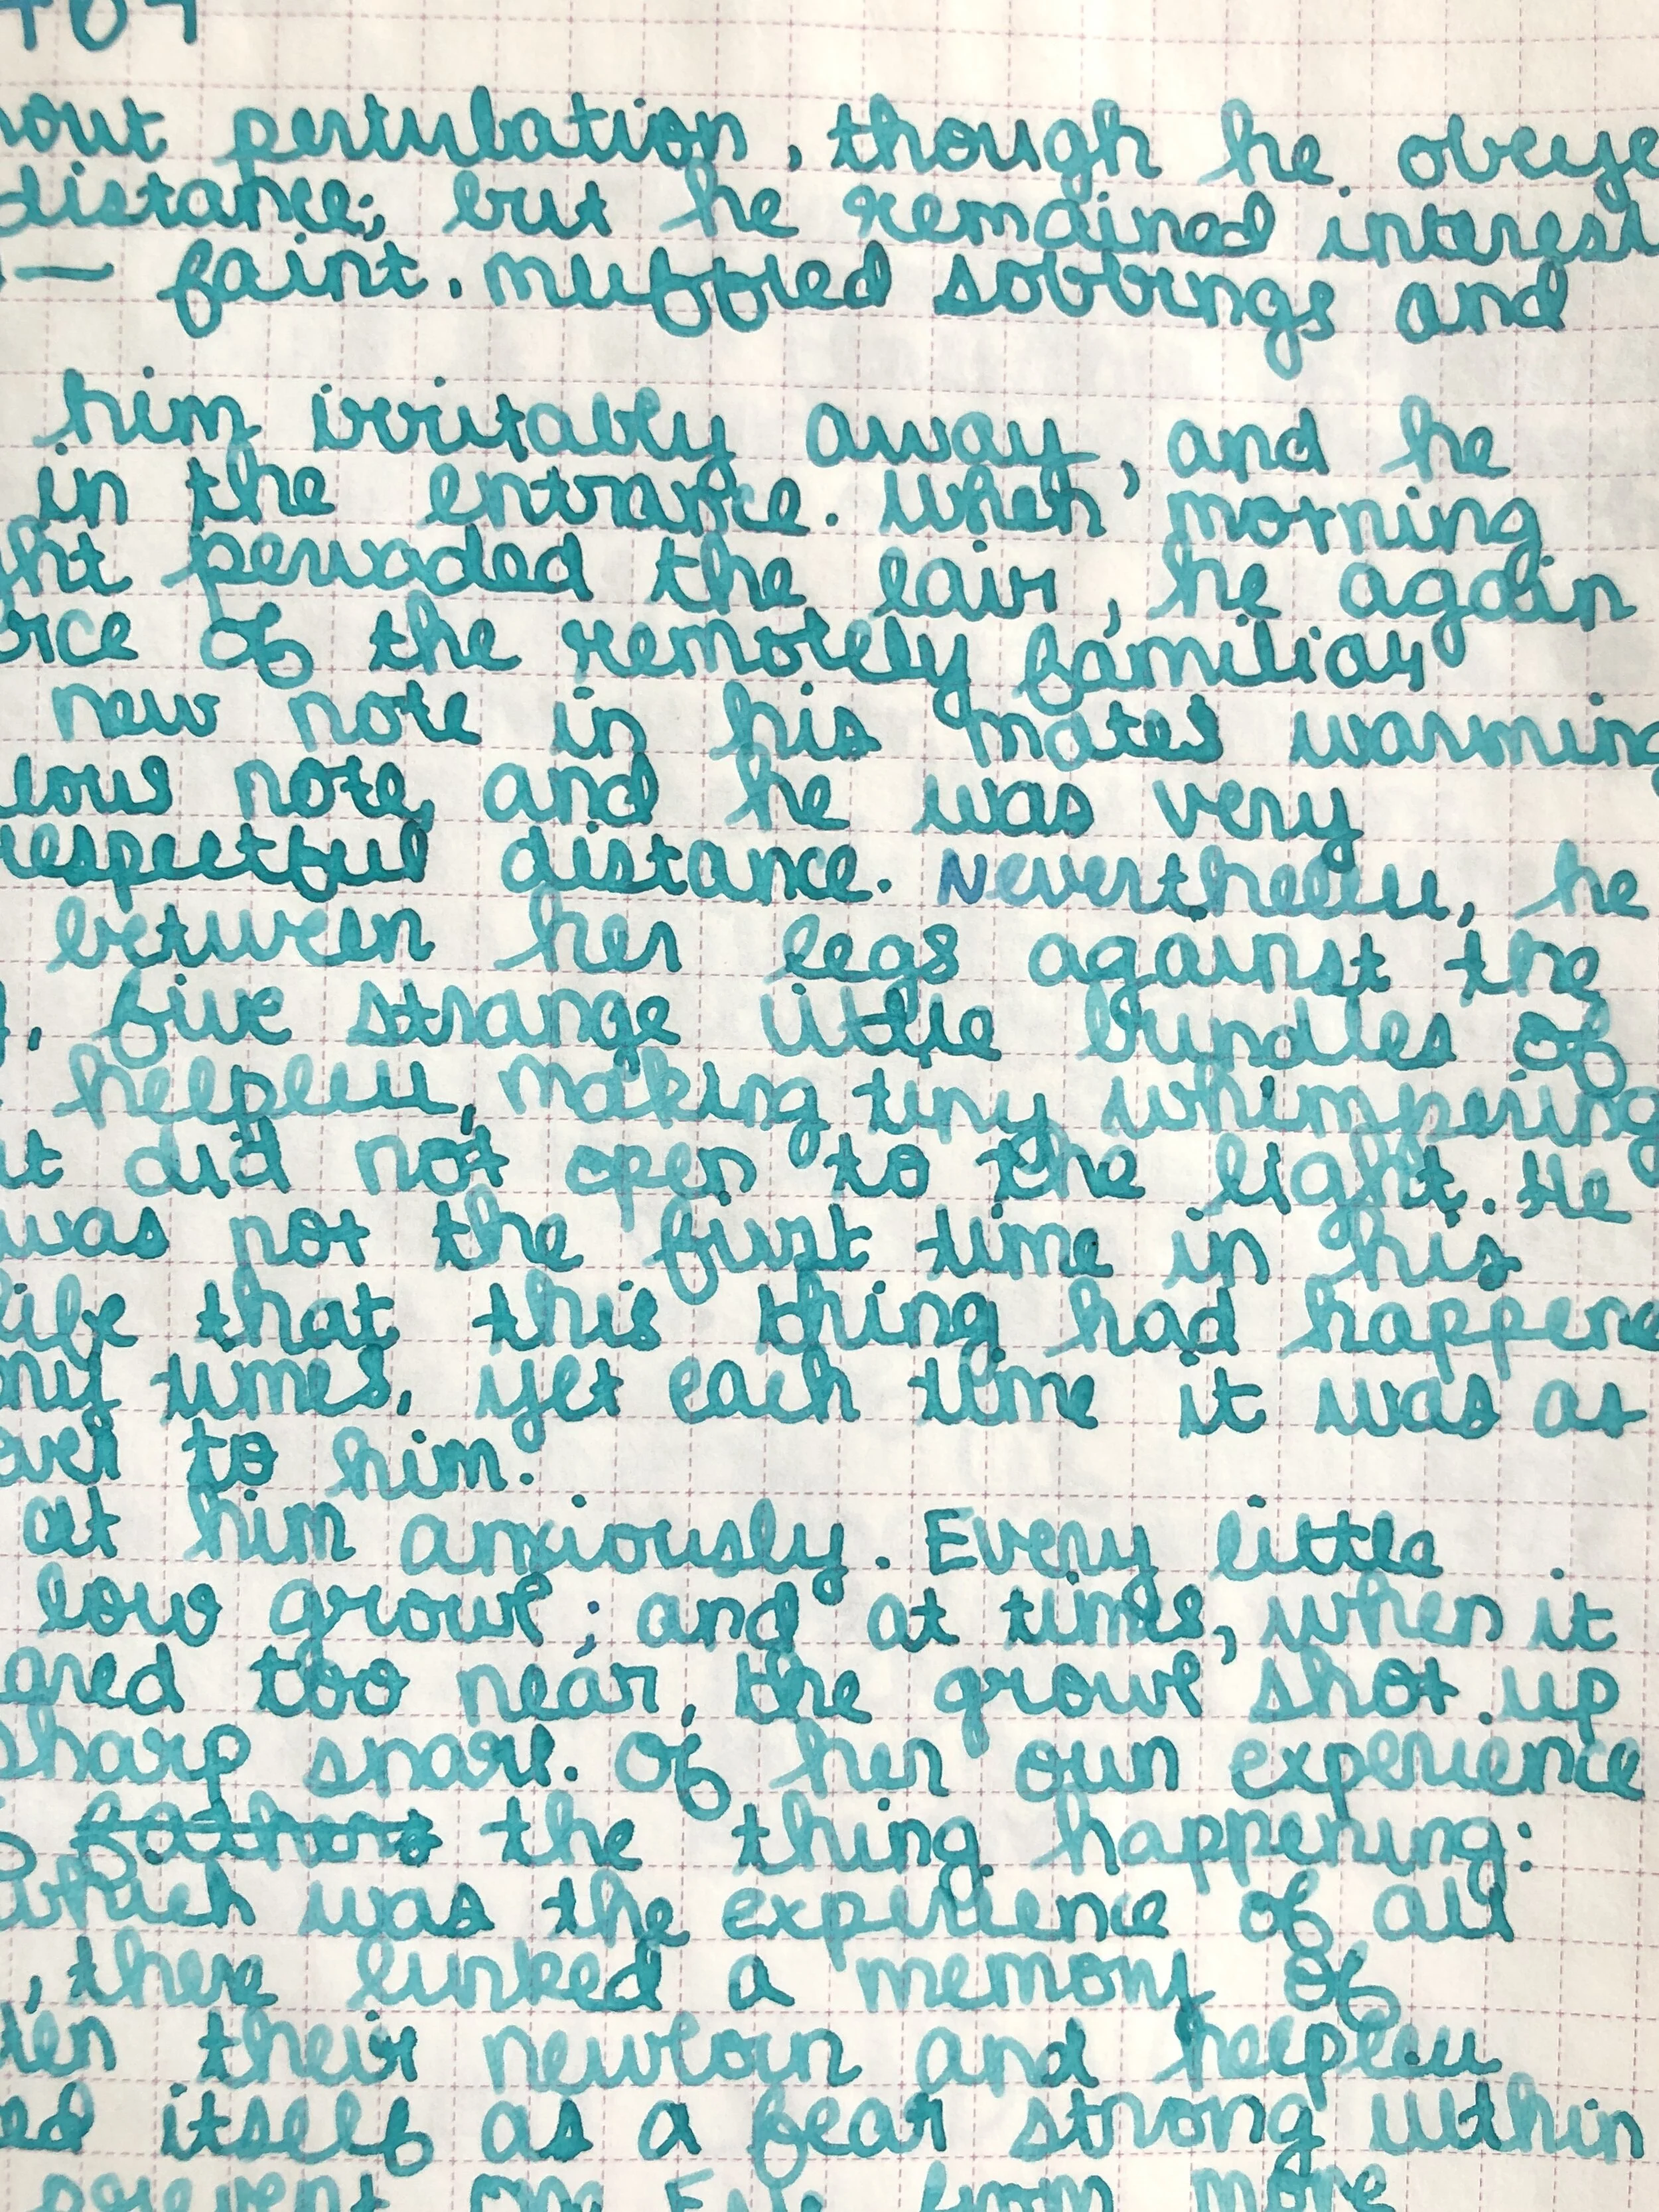 hout pertubation, though he obeye
distance; but he remained interest
— faint, muffled sobbings and
him irritably away, and he
in the entrance. When morning
ght pervaded the lair, he again
rce of the remotely familiar
new note in his mates warming
lous note, and he was very
respectful distance. Nevertheless, he
between her legs against the
, five strange little bundles of
helpless, making tiny whimpering
at did not open to the light. He
was not the first time in his
life that this thing had happene
ny times, yet each time it was as
ever to him.
at him anxiously. Every little
low growl; and at times, when it
ared too near, the growl shot up
sharp snarl. Of her own experience
fathers the thing happening:
which was the experience of all
, there lurked a memory of
ten their newborn and helpless
ed itself as a fear strong within
prevent One Eye from more